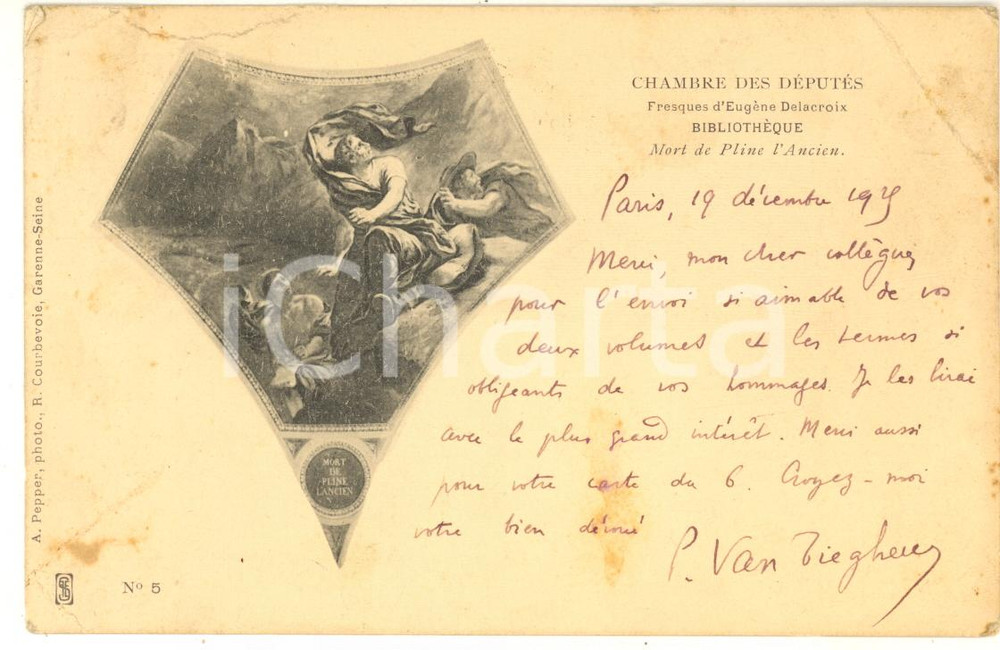 CHAMBRE DES DÉPUTÉS
Fresques d'Eugène Delacroix
BIBLIOTHÈQUE
Mort de Pline l'Ancien.
Paris, 19 décembre
Merci, mon cher collègue,
pour l'envoi si aimable de vos
deux volumes et les termes si
obligeants de vos hommages. Je les lirai
avec le plus grand intérêt. Merci aussi
pour votre carte du 6. Croyez-moi
votre bien dévoué
P. Van Tieghem
MORT
DE
PLINE
L'ANCIEN
A. Pepper, photo., R. Courbevoie, Garenne-Seine
Nº 5
iCharta